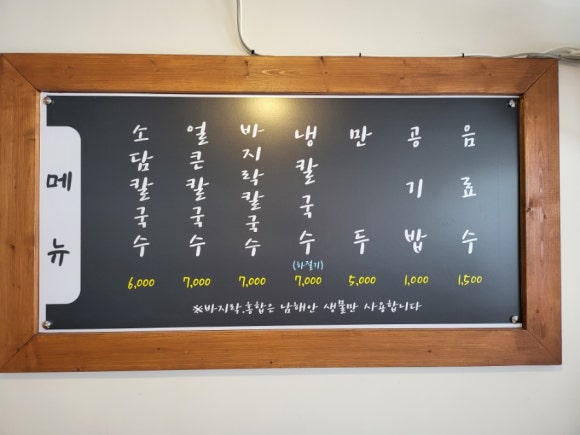 메뉴
소담칼국수
6,000
얼큰칼국수
7,000
바지락칼국수
7,000
냉칼국수
(하절기)
7,000
만두
5,000
공기밥
1,000
음료수
1,500
※바지락.홍합은 남해안 생물만 사용합니다